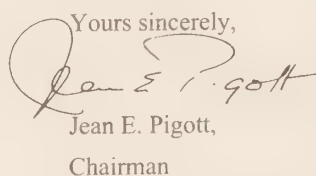 Yours sincerely,
Jean E. Pigott
Jean E. Pigott,
Chairman